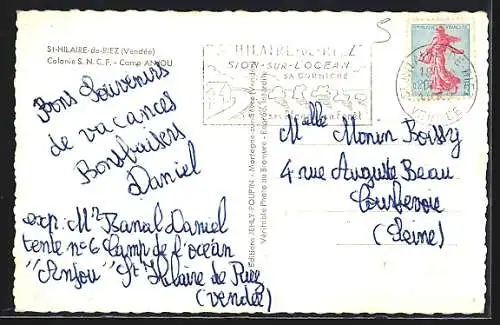 St-HILAIRE-de-RIEZ (Vendée)
Colonie S. N. C. F. - Camp ANJOU
Bons Souvenirs
de vacances
Bonsbaisers
Daniel
exp: Mr Banal Daniel
tente n° 6 Camp de l'océan
"Anjou" St Hilaire de Riez
(vendée)
Editions JEHLY-POUPIN - Mortagne-sur-Sèvre (Vendée)
Véritable Photo au Bromure -
5
St HILAIRE-DE-RIEZ
SION-SUR-L'OCEAN
SA CORNICHE
Melle Monin Boissy
4 rue Auguste Beau
Courbevoie
(Seine)